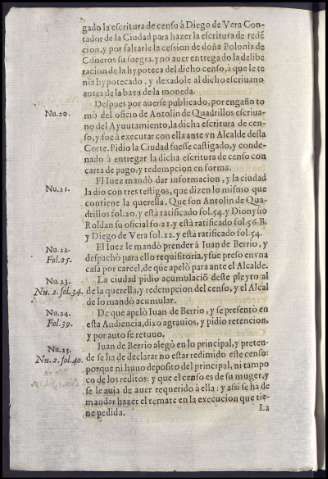 gado la escritura de censo à Diego de Vera Con-
tador de la Ciudad para hazer la escritura de redẽ
cion, y por faltarle la cession de doña Polonia de
Cisneros su suegra, y no auer entrago de la delibe
racion de la hypoteca del dicho censo, à que le te
nia hypotecado, y dexadole al dicho escriuano
antes de la baxa de la moneda.
Nu.20.
Despues por auerse publicado, por engaño to
mò del oficio de Antolin de Quadros escriua-
no del Ayuntamiento, la dicha escritura de cen-
so, y fue à executar con ella ante vn Alcalde desta
Corte. Pidio la Ciudad fuesse castigado, y conde-
nado à entregar la dicha escritura de censo con
carta de pago, y redempcion en forma.
Nu.21.
El Iuez mandò dar informacion, y la ciudad
la dio con tres testigos, que dizen lo mismo que
contiene la querella. Que son Antolin de Qua-
dros fol.20. y està ratificado fol.54. y Dionysio
Roldan su oficial fo.21. y està ratificado fol.56.B.
y Diego de Vera fol.22. y està ratificado fol.54.
Nu.22.
Fol.25.
El Iuez le mandò prender à Iuan de Berrio, y
despachò para ello requisitoria, y fue preso en vna
casa por carcel, de que apelò para ante el Alcalde.
Nu.23.
Nu.2.fol.34.
La ciudad pidio acumulaciõ deste pleyto al
de la querella, y redempcion del censo, y el Alcal
de lo mandò acumular.
Nu.24.
Fol.39.
De que apelò Iuan de Berrio, y se presentò en
esta Audiencia, dio agrauios, y pidio retencion,
y por auto se retuuo.
Nu.25.
Nu.2.fol.40.
Iuan de Berrio alegò en lo principal, y preten-
de se ha de declarar no estar redimido este censo
porque ni huuo deposito del principal, ni tampo
co de los reditos: y que el censo es de su muger, y
se le auia de auer requerido à ella: y assi se ha de
mandar hazer el remate en la execucion que tie-
ne pedida.
La